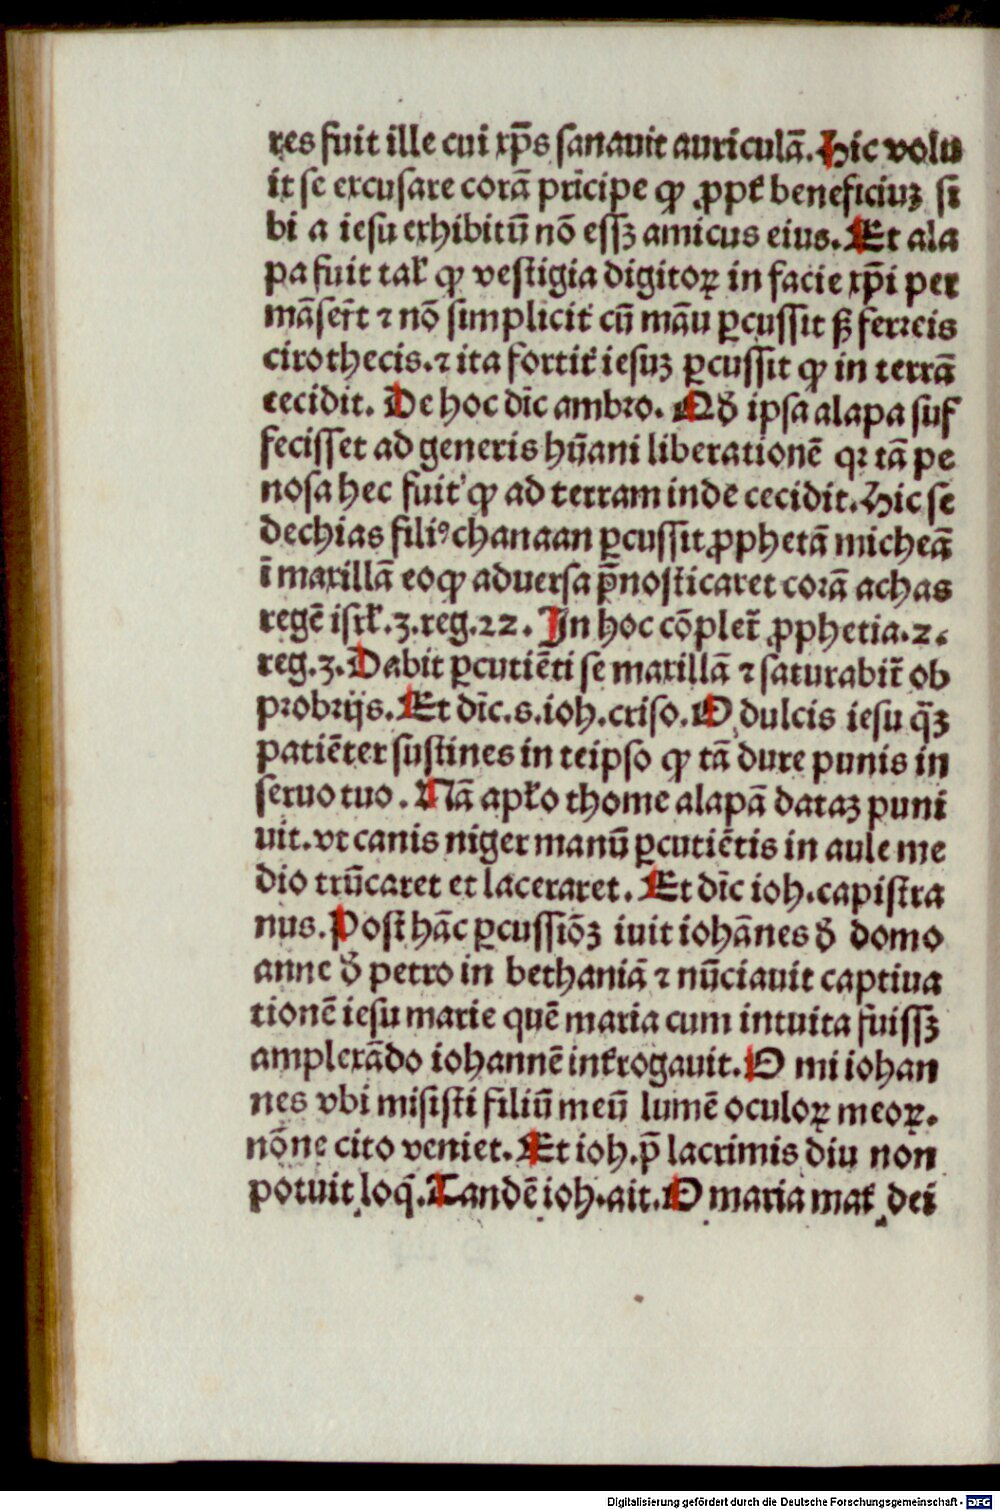 res fuit ille cui xp̄s sanauit auriculā. Hic volu
it se excusare corā prīcipe qꝫ ꝓpt̄ beneficiuꝫ si
bi a iesu exhibitū nō essꝫ amicus eius. Et ala
pa fuit tal̄ ꝙ vestigia digitoꝝ in facie xp̄i per
māser̄t ⁊ nō simplicit̄ cū māu ꝑcussit sꝫ ferreis
cirothecis. ⁊ ita fortit̄ iesuꝫ ꝑcussit ꝙ in terrā
cecidit. De hoc dīc ambro. Qđ ipsa alapa suf
fecisset ad generis hūani liberationē qꝛ tā pe
nosa hec fuit ꝙ ad terram inde cecidit. Hic se
dechias filiꝰ chanaan ꝑcussit ꝓphetā micheā
ī maxillā eo ꝙ aduersa p̄nosticaret corā achas
regē isrl̄. 3. reg. 22. In hoc cōpler̄ ꝓphetia. 2.
reg. 3. Dabit ꝑcutiēti se maxillā ⁊ saturabit̄ ob
probrijs. Et dīc. s. ioh. criso. O dulcis iesu q̄ꝫ
patiēter sustines in teipso ꝙ tā dure punis in
seruo tuo. Nā apl̄o thome alapā dataꝫ puni
uit. vt canis niger manū ꝑcutiētis in aule me
dio trūcaret et laceraret. Et dīc ioh. capistra
nus. Post hāc ꝑcussiōꝫ iuit iohānes đ domo
anne đ petro in bethaniā ⁊ nūciauit captiua
tionē iesu marie quē maria cum intuita fuissꝫ
amplexādo iohannē int̄rogauit. O mi iohan
nes vbi misisti filiū meū lumē oculoꝝ meoꝝ.
nōne cito veniet. Et ioh. p̄ lacrimis diu non
potuit loq̄. Tandē ioh. ait. O maria mat̄ dei
Digitalisierung gefördert durch die Deutsche Forschungsgemeinschaft - DFG